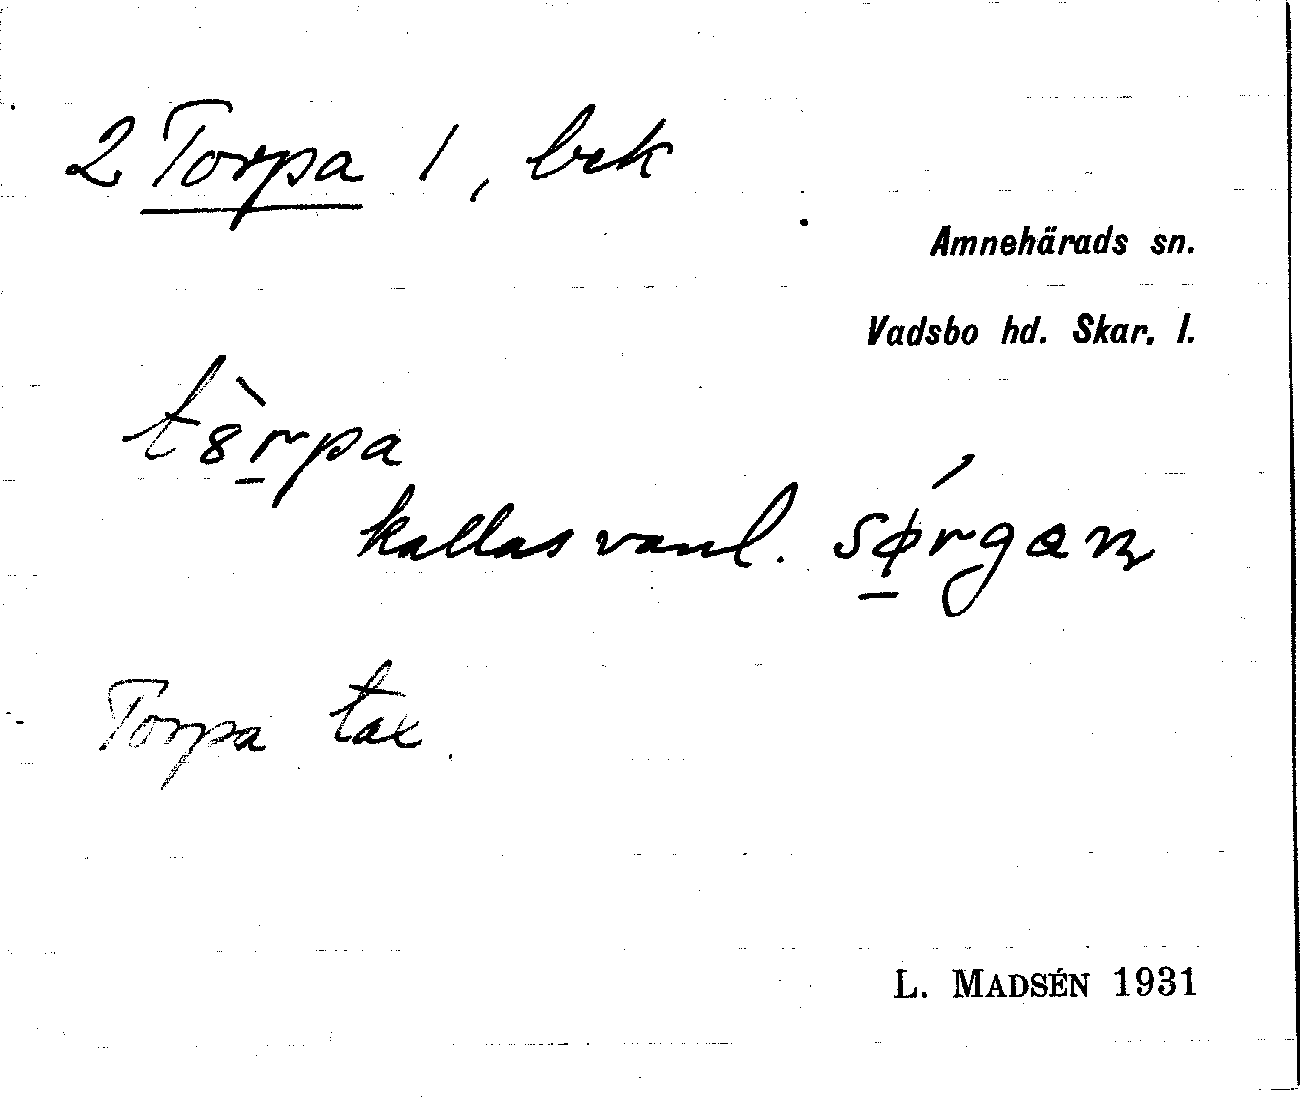 2 Torpa 1, brk
Amnehärads sn.
Vadsbo hd. Skar. l.
tȣ̀r̠pa
kallas vanl. sǿ̠rgaɲ
Torpa tax.
L. MADSÉN 1931